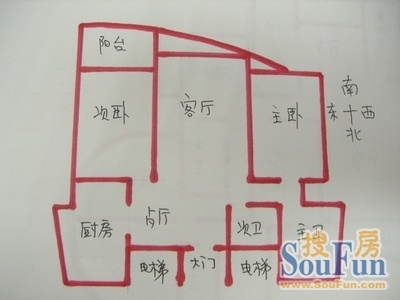 阳台
次卧
客厅
主卧
南
东 西
北
厨房
歺厅
次卫
主卫
电梯
大门
电梯
搜房
SouFun
www.SouFun.com